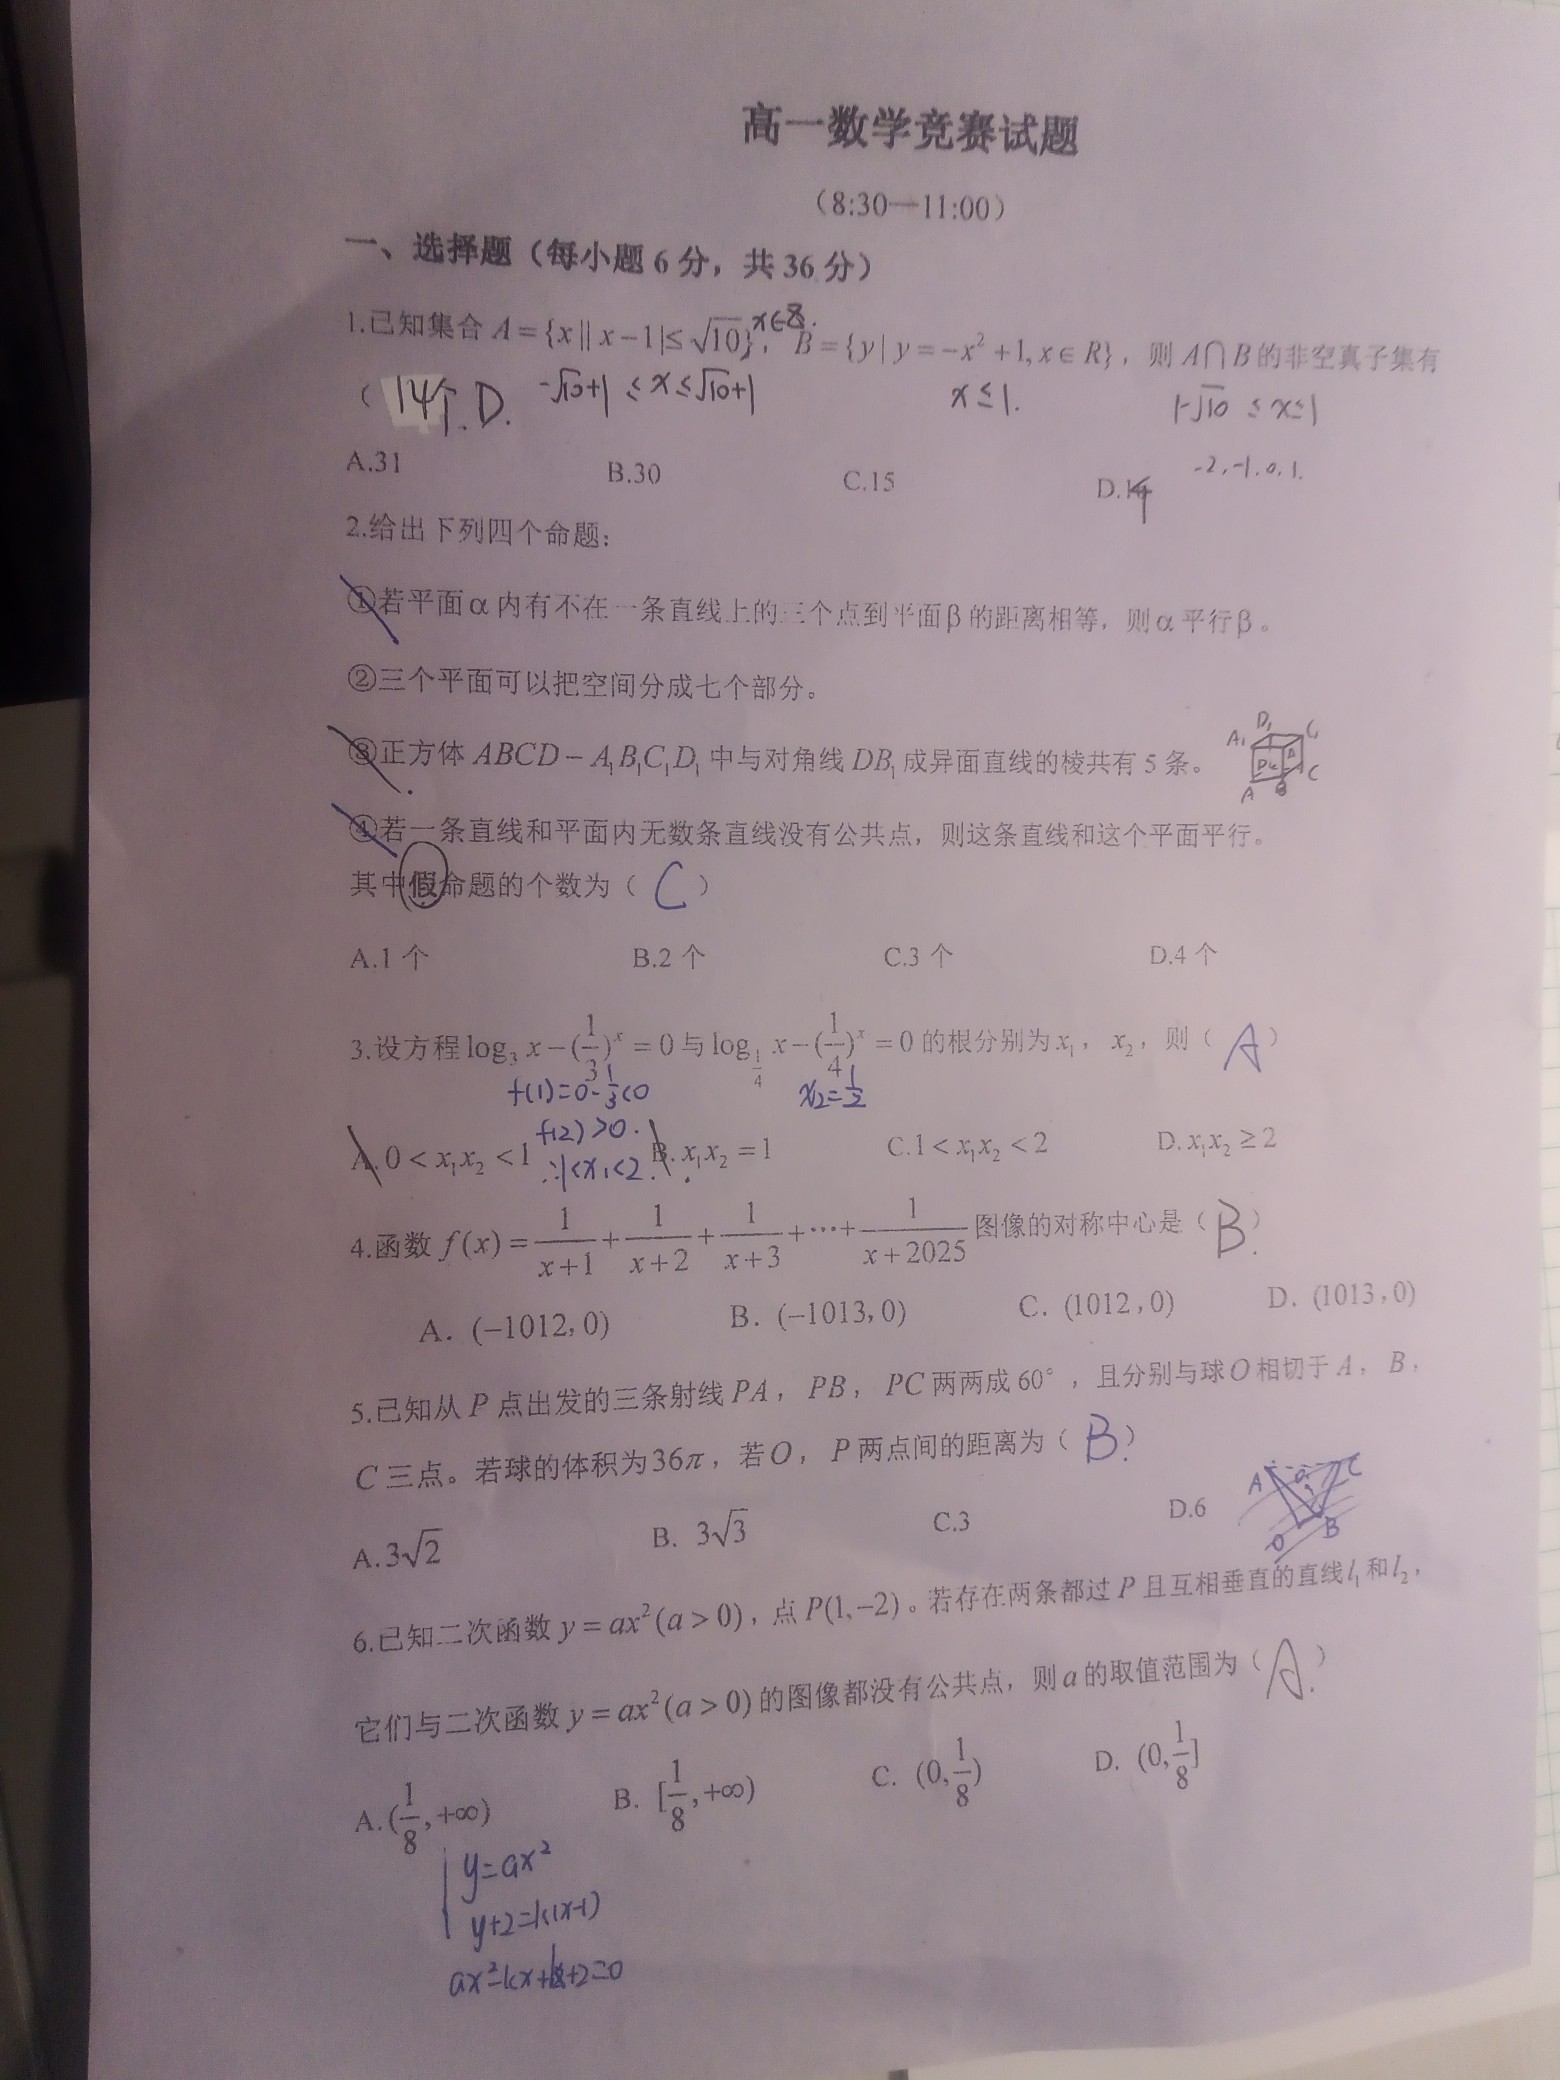 高一数学竞赛试题
（8:30—11:00）
一、选择题（每小题6分，共36分）
x∈Z.
1.已知集合 A={x||x-1|≤√10}，B={y|y=-x²+1,x∈R}，则 A∩B 的非空真子集有
（ 14个. D. -√10+1 ≤x≤√10+1 x≤1. 1-√10 ≤x≤1
-2,-1,0,1.
A.31 B.30 C.15 D.14
2.给出下列四个命题：
①若平面α内有不在一条直线上的三个点到平面β的距离相等，则α平行β。
②三个平面可以把空间分成七个部分。
③正方体 ABCD-A₁B₁C₁D₁ 中与对角线 DB₁ 成异面直线的棱共有5条。
A₁ D₁ C₁ A B C
④若一条直线和平面内无数条直线没有公共点，则这条直线和这个平面平行。
其中假命题的个数为（ C ）
A.1个 B.2个 C.3个 D.4个
3.设方程 log₃ x-(1/3)ˣ=0 与 log_{1/4} x-(1/4)ˣ=0 的根分别为 x₁，x₂，则（ A ）
f(1)=0-1/3<0 x₂=1/2
f(2)>0.
∴1<x₁<2.
A.0<x₁x₂<1 B.x₁x₂=1 C.1<x₁x₂<2 D.x₁x₂≥2
4.函数 f(x)=1/(x+1)+1/(x+2)+1/(x+3)+…+1/(x+2025) 图像的对称中心是（ B. ）
A. (-1012,0) B. (-1013,0) C. (1012,0) D. (1013,0)
5.已知从 P 点出发的三条射线 PA，PB，PC 两两成 60°，且分别与球 O 相切于 A，B，
C 三点。若球的体积为 36π，若 O，P 两点间的距离为（ B. ）
A C O B
A.3√2 B. 3√3 C.3 D.6
6.已知二次函数 y=ax²(a>0)，点 P(1,-2)。若存在两条都过 P 且互相垂直的直线 l₁ 和 l₂，
它们与二次函数 y=ax²(a>0) 的图像都没有公共点，则 a 的取值范围为（ A. ）
A.(1/8,+∞) B. [1/8,+∞) C. (0,1/8) D. (0,1/8]
y=ax²
y+2=k(x-1)
ax²-kx+k+2=0